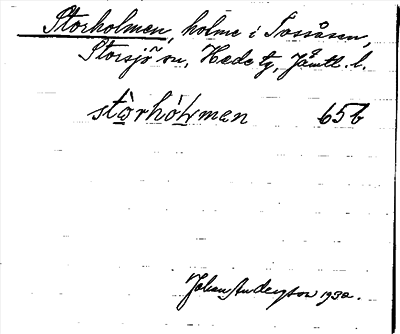 Storholmen, holme i Tossåsen,
Storsjö sn, Hede tg, Jämtl. l.
stòrhól̥man 65b
Johan Anderson 1930.